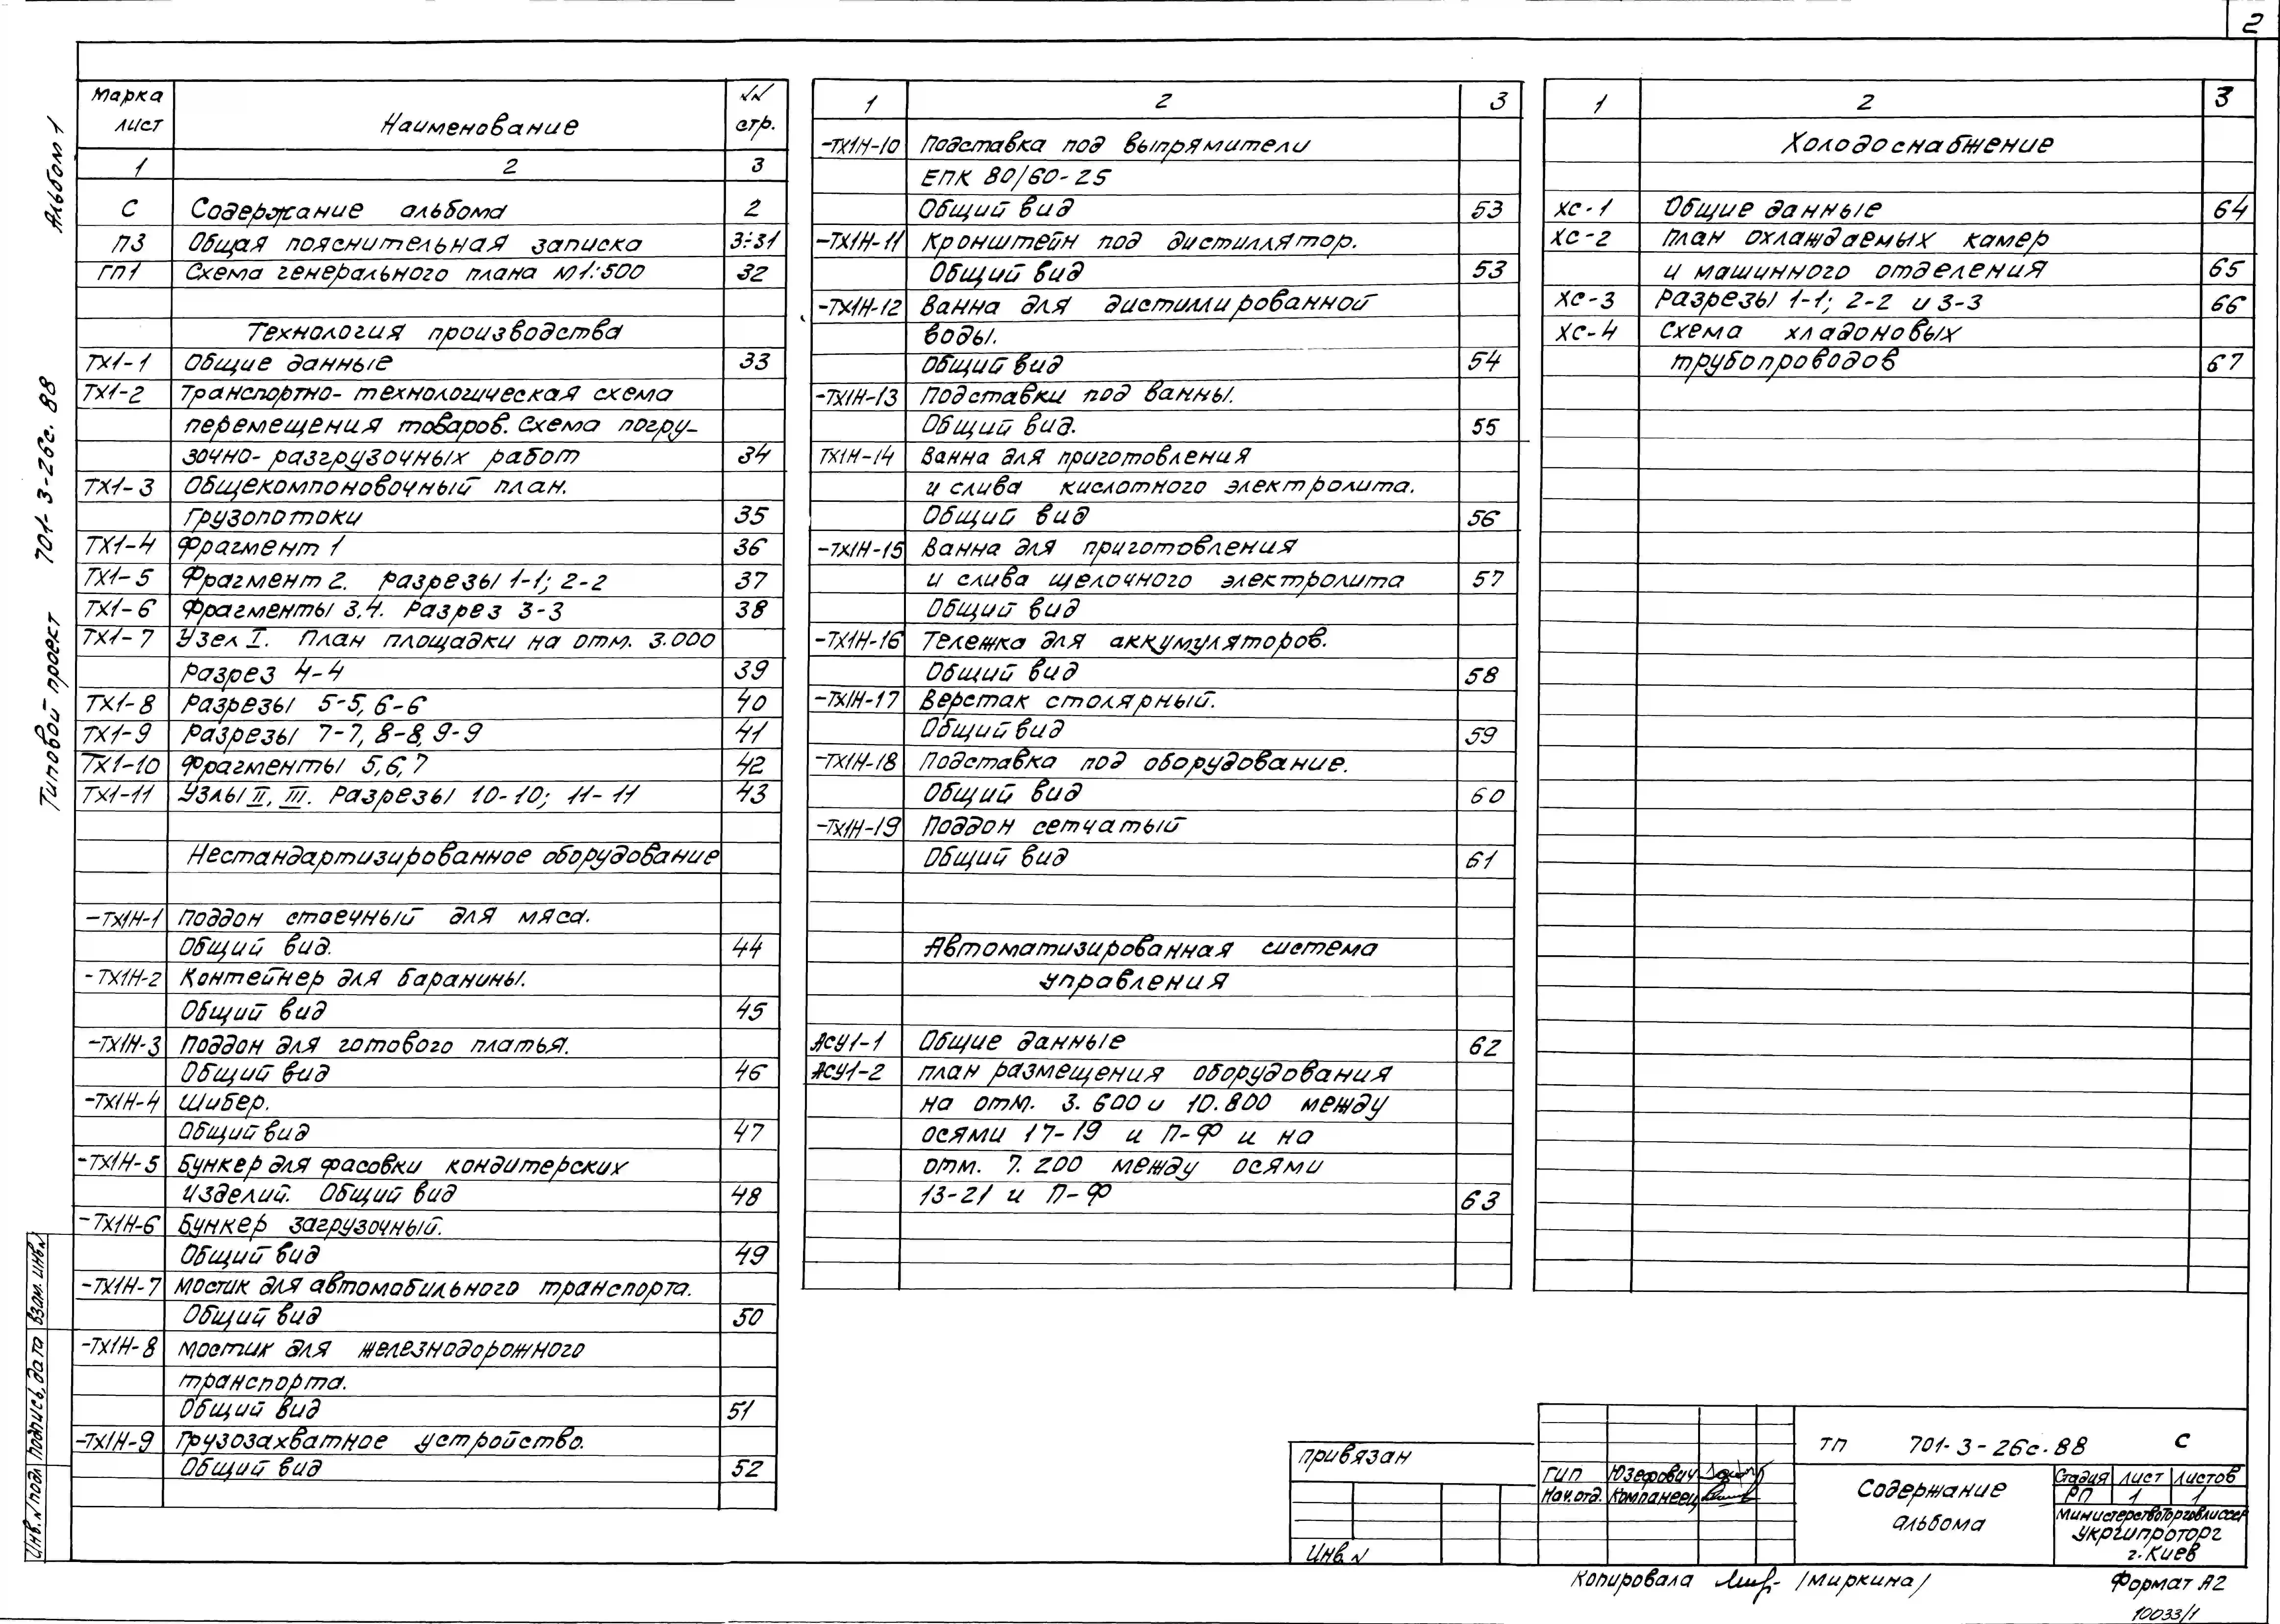 2
Альбом 1
Типовой проект 701-3-26с.88
Марка лист Наименование №№ стр.
1 2 3
С Содержание альбома 2
ПЗ Общая пояснительная записка 3÷31
ГП1 Схема генерального плана М1:500 32
Технология производства
ТХ1-1 Общие данные 33
ТХ1-2 Транспортно-технологическая схема
перемещения товаров. Схема погру-
зочно-разгрузочных работ 34
ТХ1-3 Общекомпоновочный план.
Грузопотоки 35
ТХ1-4 Фрагмент 1 36
ТХ1-5 Фрагмент 2. Разрезы 1-1; 2-2 37
ТХ1-6 Фрагменты 3,4. Разрез 3-3 38
ТХ1-7 Узел I. План площадки на отм. 3.000
Разрез 4-4 39
ТХ1-8 Разрезы 5-5, 6-6 40
ТХ1-9 Разрезы 7-7, 8-8, 9-9 41
ТХ1-10 Фрагменты 5,6,7 42
ТХ1-11 Узлы II, III. Разрезы 10-10; 11-11 43
Нестандартизированное оборудование
-ТХ1Н-1 Поддон стоечный для мяса.
Общий вид. 44
-ТХ1Н-2 Контейнер для баранины.
Общий вид 45
-ТХ1Н-3 Поддон для готового платья.
Общий вид 46
-ТХ1Н-4 Шибер.
Общий вид 47
-ТХ1Н-5 Бункер для фасовки кондитерских
изделий. Общий вид 48
-ТХ1Н-6 Бункер загрузочный.
Общий вид 49
-ТХ1Н-7 Мостик для автомобильного транспорта.
Общий вид 50
-ТХ1Н-8 Мостик для железнодорожного
транспорта.
Общий вид 51
-ТХ1Н-9 Грузозахватное устройство.
Общий вид 52
1 2 3
-ТХ1Н-10 Подставка под выпрямители
ЕПК 80/60-25
Общий вид 53
-ТХ1Н-11 Кронштейн под дистиллятор.
Общий вид 53
-ТХ1Н-12 Ванна для дистиллированной
воды.
Общий вид 54
-ТХ1Н-13 Подставки под ванны.
Общий вид. 55
ТХ1Н-14 Ванна для приготовления
и слива кислотного электролита.
Общий вид 56
-ТХ1Н-15 Ванна для приготовления
и слива щелочного электролита 57
Общий вид
-ТХ1Н-16 Тележка для аккумуляторов.
Общий вид 58
-ТХ1Н-17 Верстак столярный.
Общий вид 59
-ТХ1Н-18 Подставка под оборудование.
Общий вид 60
-ТХ1Н-19 Поддон сетчатый
Общий вид 61
Автоматизированная система
управления
АСУ1-1 Общие данные 62
АСУ1-2 План размещения оборудования
на отм. 3.600 и 10.800 между
осями 17-19 и П-Ф и на
отм. 7.200 между осями
13-21 и П-Ф 63
1 2 3
Холодоснабжение
ХС-1 Общие данные 64
ХС-2 План охлаждаемых камер
и машинного отделения 65
ХС-3 Разрезы 1-1; 2-2 и 3-3 66
ХС-4 Схема хладоновых
трубопроводов 67
Инв.№подл Подпись, дата Взам.инв№
Привязан
Инв.№
ТП 701-3-26с.88 С
ГИП Юзефович
Нач.отд. Компанеец
Содержание
альбома
Стадия Лист Листов
РП 1 1
Министерство торговли СССР
Укргипроторг
г.Киев
Копировала /Миркина/ Формат А2
10033/1